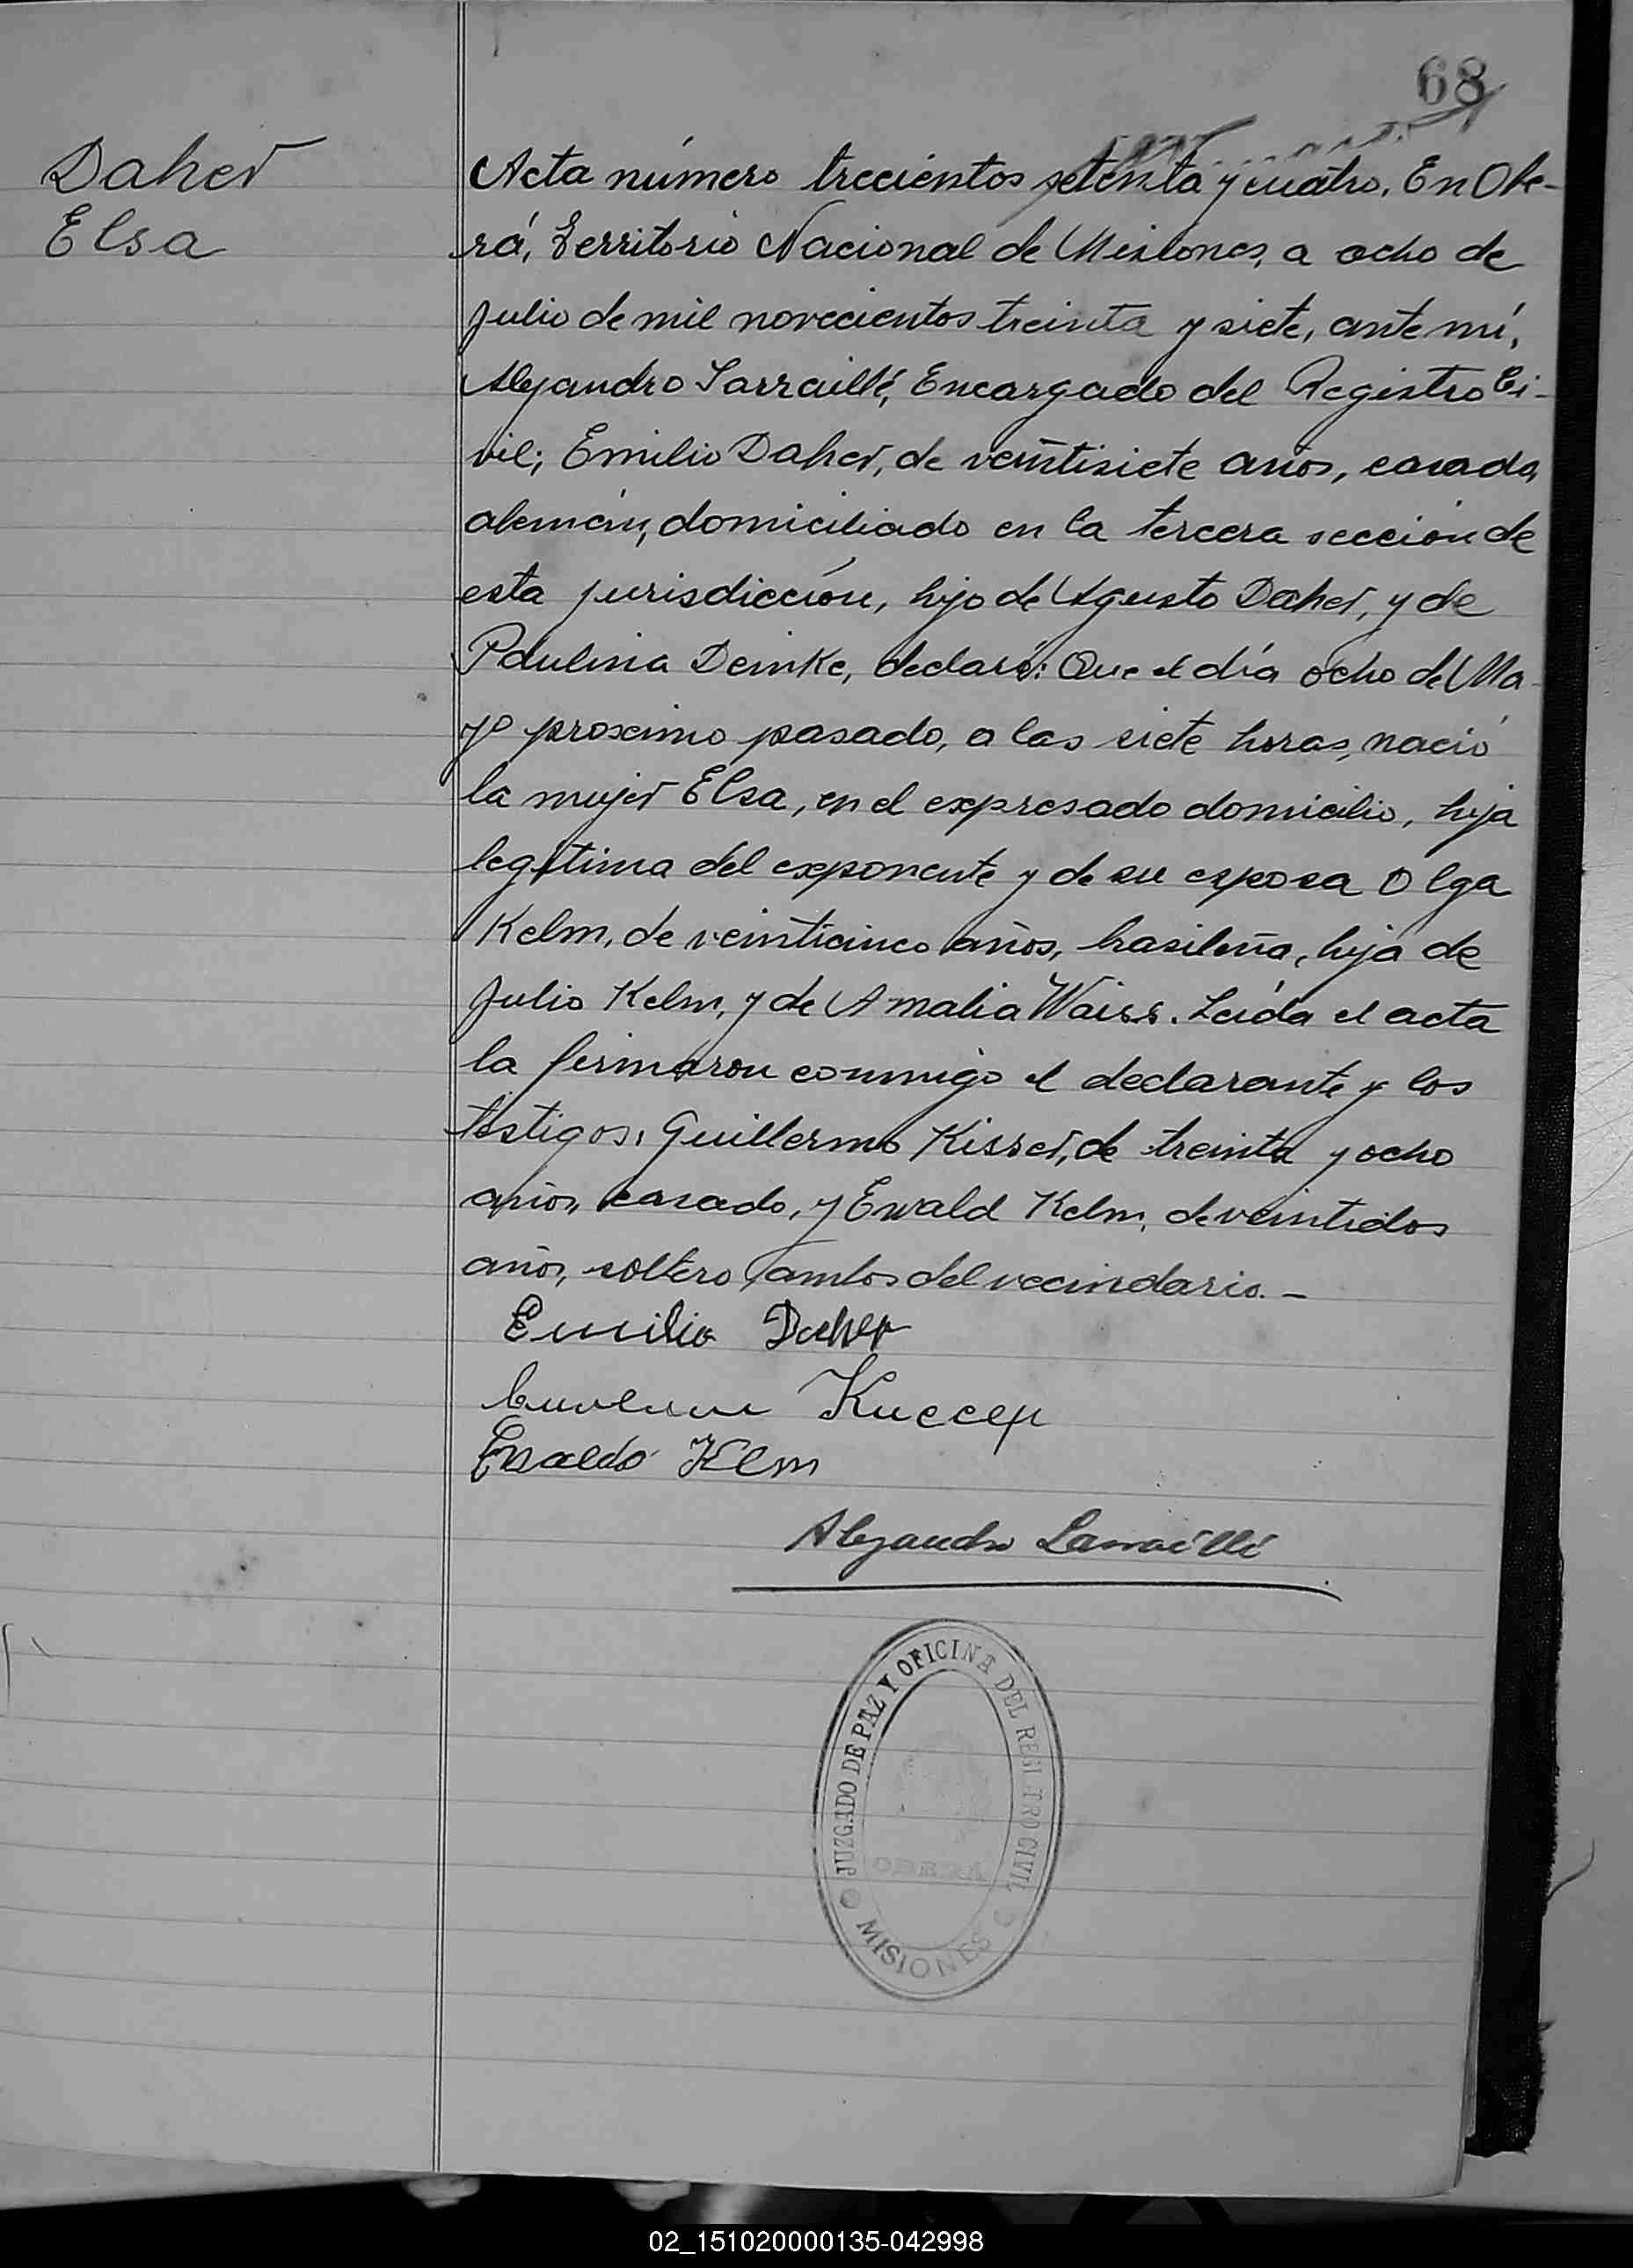 68
Daher
Elsa
Acta número trecientos setenta y cuatro. En Obe-
rá, Territorio Nacional de Misiones, a ocho de
Julio de mil novecientos treinta y siete, ante mí,
Alejandro Sarraillé, Encargado del Registro Ci-
vil; Emilio Daher, de veintisiete años, casado,
alemán, domiciliado en la tercera sección de
esta jurisdicción, hijo de Agusto Daher, y de
Paulina Deinke, declaró: Que el día ocho de Ma-
yo proximo pasado, a las siete horas, nació
la mujer Elsa, en el expresado domicilio, hija
legitima del exponente y de su esposa Olga
Kelm, de veinticinco años, brasileña, hija de
Julio Kelm, y de Amalia Waiss. Leída el acta
la firmaron conmigo el declarante y los
testigos, Guillermo Kisser, de treinta y ocho
años, casado, y Ewald Kelm, de veintidos
años, soltero, ambos del vecindario. -
Emilio Daher
Evaldo Kelm
Alejandro Sarraillé
JUZGADO DE PAZ Y OFICINA DEL REGISTRO CIVIL
OBERA
MISIONES
02_151020000135-042998